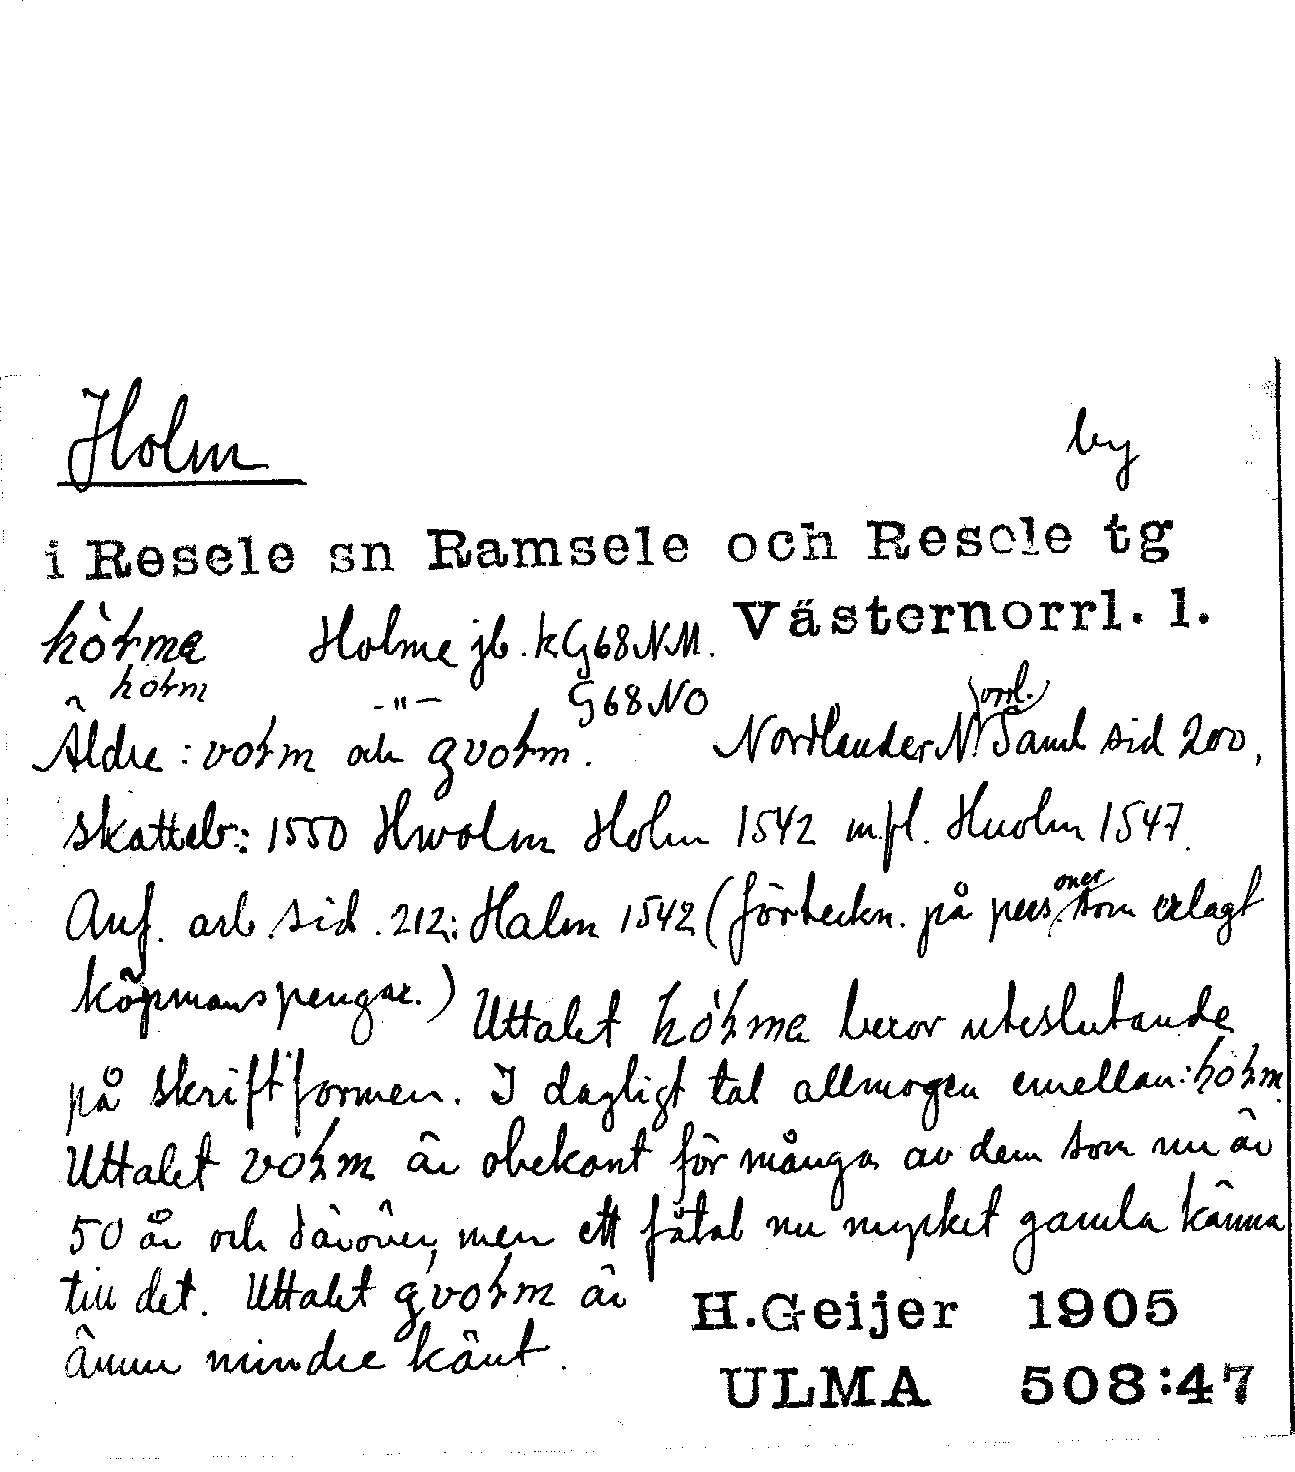 Holm by
i Resele sn Ramsele och Resele tg
Västernorrl. l.
hòɫma Holme jb. k G68 N.M.
hoɫm -"- G68 NO
Äldre: voɫm och gvoɫm. Nordlander Norrl. Saml sid 200,
skatteb.: 1550 Hwolm Holm 1542 m.fl. Huolm 1547.
Anf. arb. sid. 212: Halm 1542 (förteckn. på personer som erlagt
köpmanspengar.)
Uttalet hòɫma beror uteslutande
på skriftformen. I dagligt tal allmogen emellan: hoɫm.
Uttalet voɫm är obekant för många av dem som nu är
50 år och däröver, men ett fåtal nu mycket gamla känna
till det. Uttalet gvoɫm är
ännu mindre känt.
H. Geijer 1905
ULMA 508:47